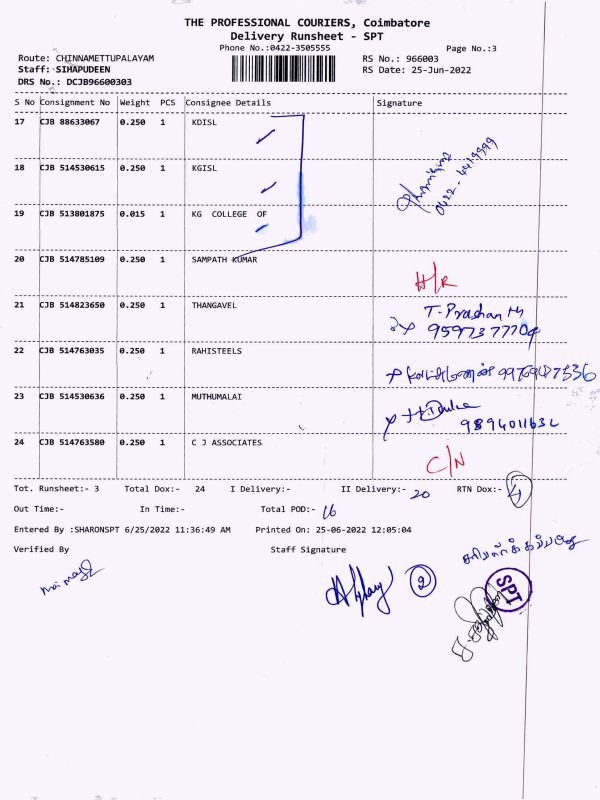 THE PROFESSIONAL COURIERS, Coimbatore
Delivery Runsheet - SPT
Phone No.:0422-3505555
Page No.:3
Route: CHINNAMETTUPALAYAM
RS No.: 966003
Staff: SIHAPUDEEN
RS Date: 25-Jun-2022
DRS No.: DCJB96600303
S No Consignment No Weight PCS Consignee Details Signature
17 CJB 88633067 0.250 1 KDISL
18 CJB 514530615 0.250 1 KGISL
0422-4419999
19 CJB 513801875 0.015 1 KG COLLEGE OF
20 CJB 514785109 0.250 1 SAMPATH KUMAR
H/R
21 CJB 514823650 0.250 1 THANGAVEL T. Prashanth
9597377704
22 CJB 514763035 0.250 1 RAHISTEELS
23 CJB 514530636 0.250 1 MUTHUMALAI
9894011632
24 CJB 514763580 0.250 1 C J ASSOCIATES
C/N
Tot. Runsheet:- 3 Total Dox:- 24 I Delivery:- II Delivery:- 20 RTN Dox:- 4
Out Time:- In Time:- Total POD:- 16
Entered By :SHARONSPT 6/25/2022 11:36:49 AM Printed On: 25-06-2022 12:05:04
Verified By Staff Signature
2
SPT